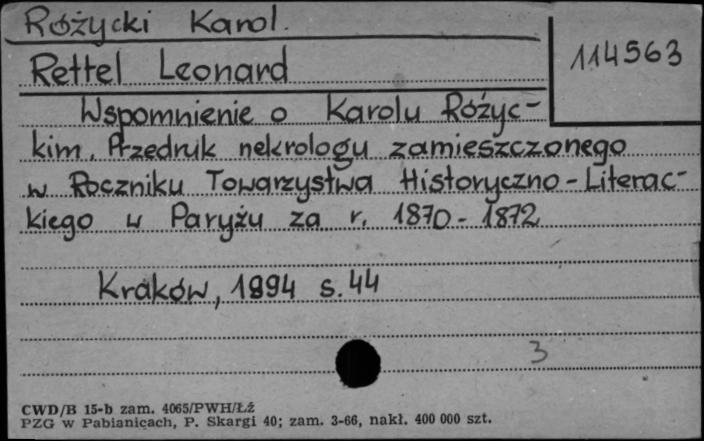 Różycki Karol.
114563
Rettel Leonard
Wspomnienie o Karolu Różyc-
kim. Przedruk nekrologu zamieszczonego
w Roczniku Towarzystwa Historyczno-Literac-
kiego w Paryżu za r. 1870-1872
Kraków, 1894 s. 44
3
CWD/B 15-b zam. 4065/PWH/ŁŹ
PZG w Pabianicach, P. Skargi 40; zam. 3-66, nakł. 400 000 szt.